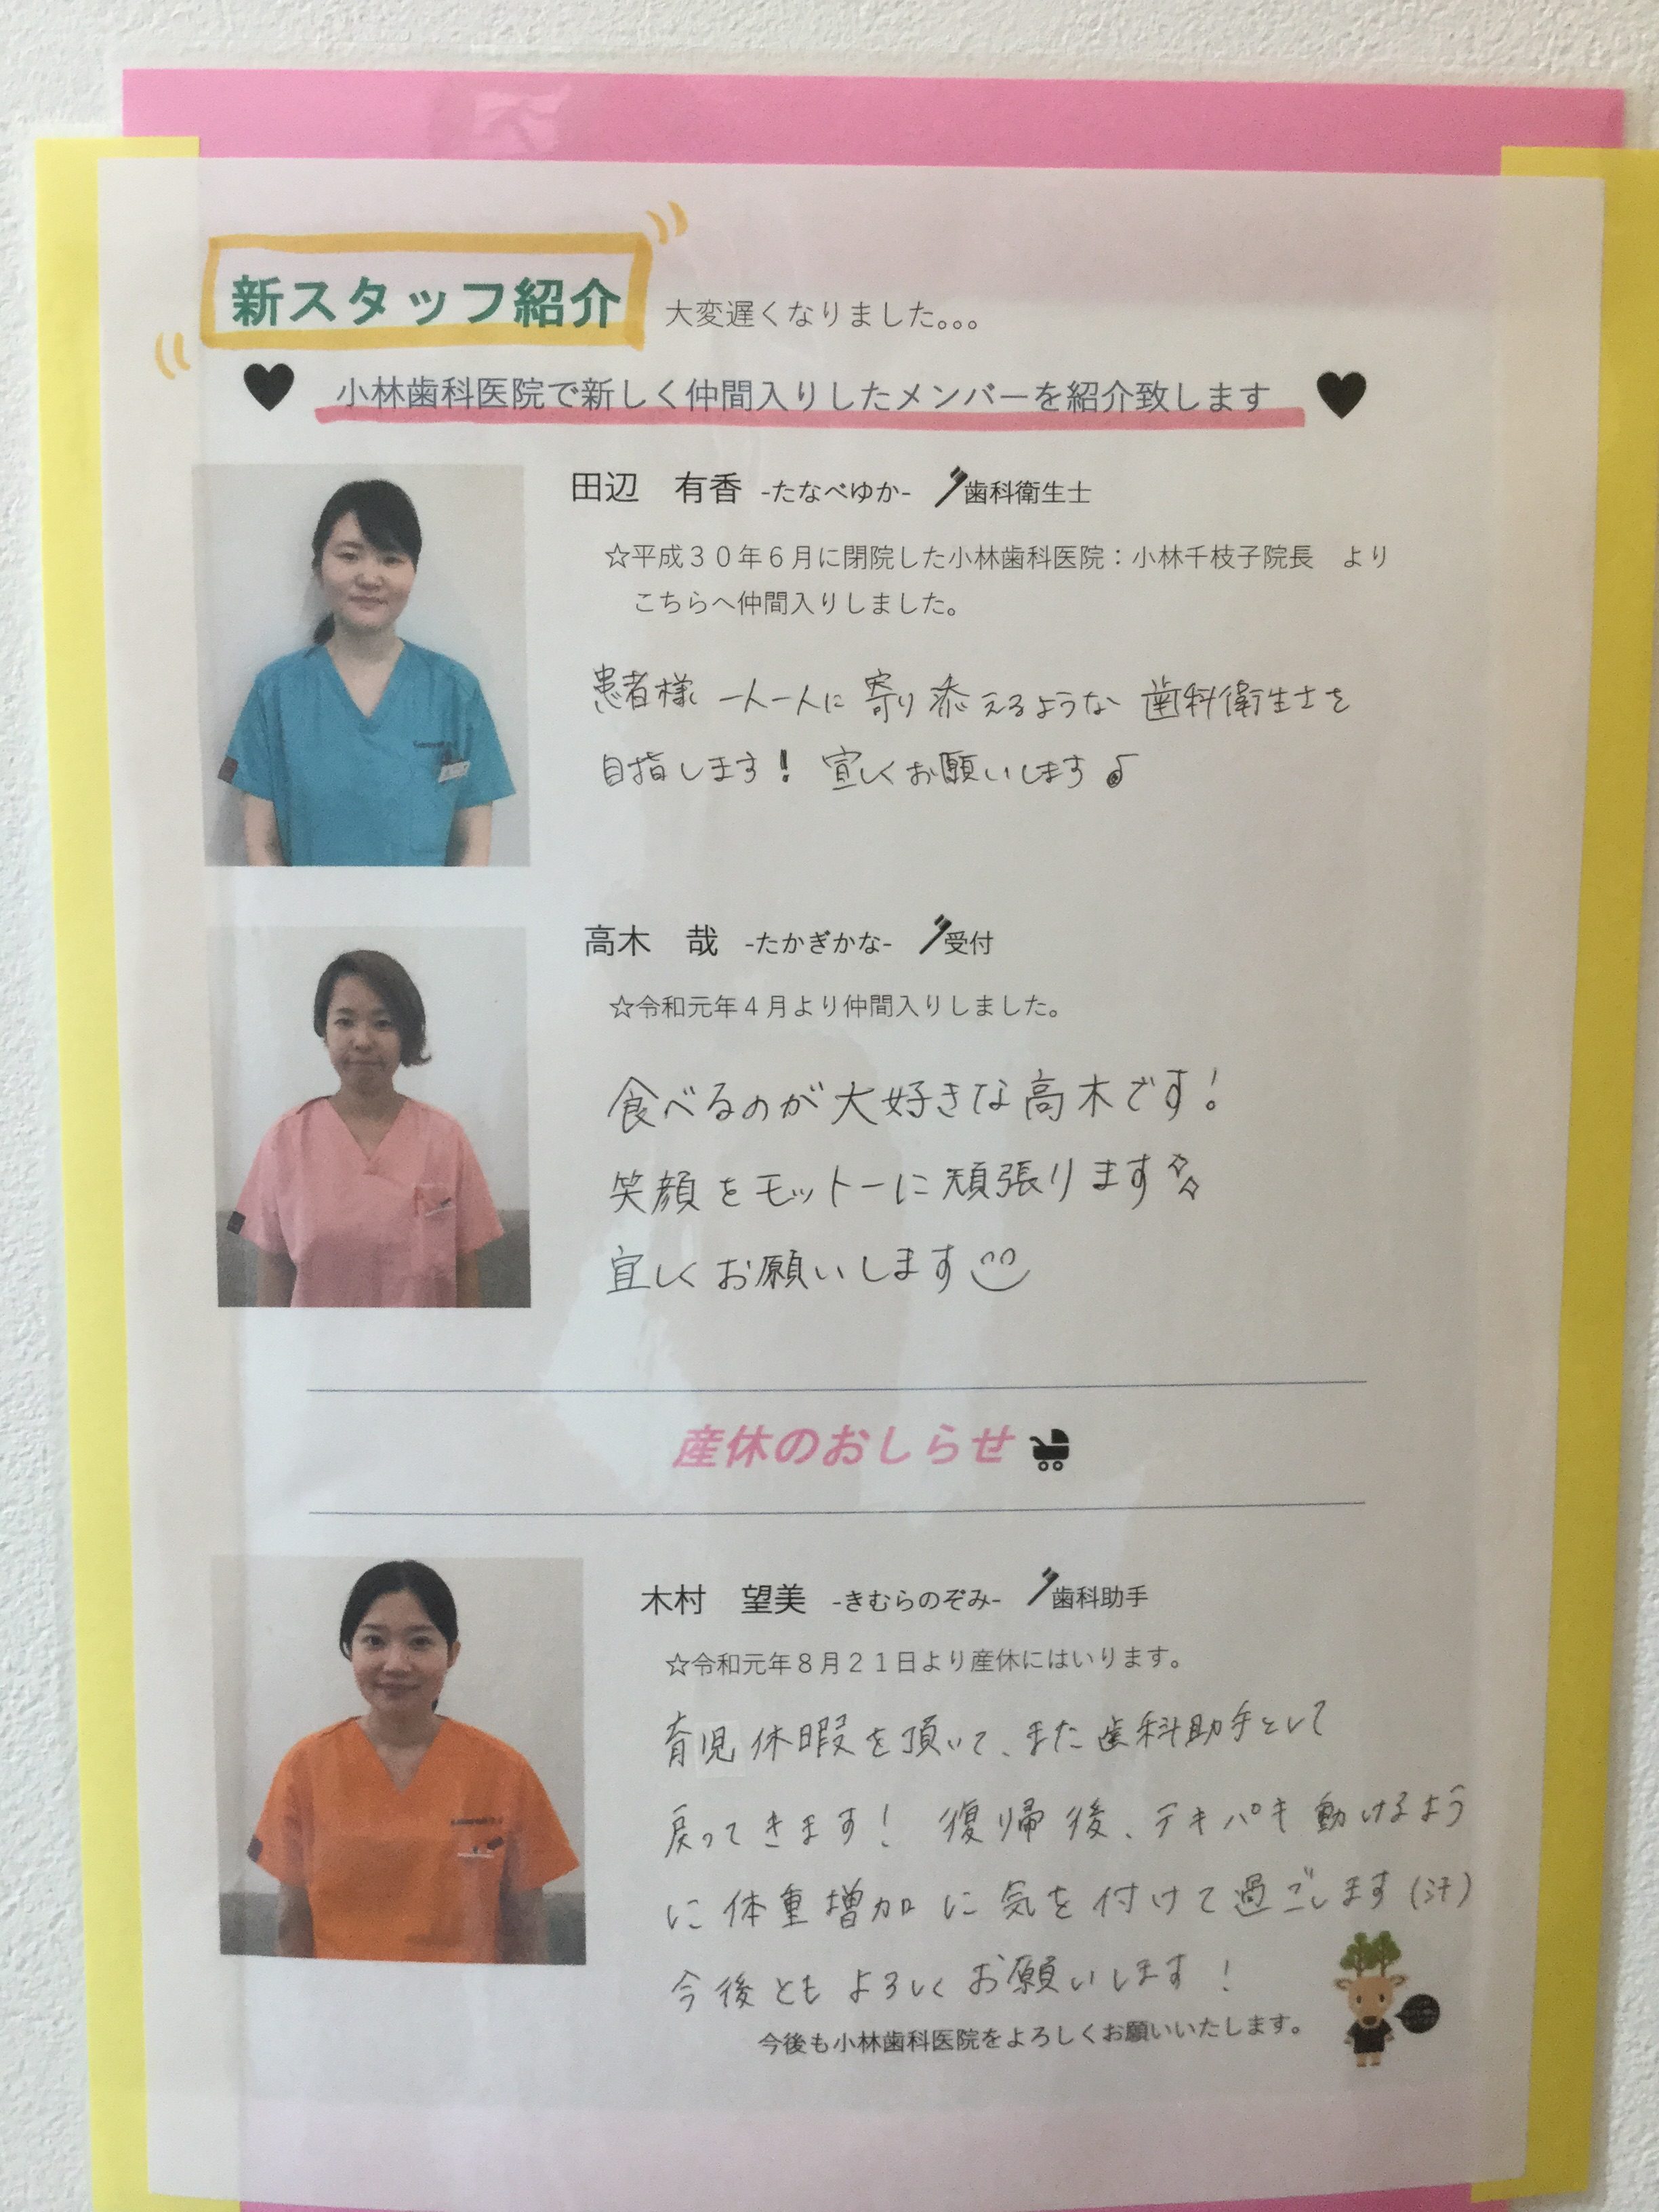 新スタッフ紹介 大変遅くなりました。。。
小林歯科医院で新しく仲間入りしたメンバーを紹介致します
田辺　有香 -たなべゆか- 歯科衛生士
☆平成３０年６月に閉院した小林歯科医院：小林千枝子院長　より
こちらへ仲間入りしました。
患者様 一人一人に 寄り添えるような 歯科衛生士を
目指します! 宜しくお願いします♪
高木　哉 -たかぎかな- 受付
☆令和元年４月より仲間入りしました。
食べるのが大好きな高木です!
笑顔をモットーに頑張ります
宜しくお願いします
産休のおしらせ
木村　望美 -きむらのぞみ- 歯科助手
☆令和元年８月２１日より産休にはいります。
育児休暇を頂いて、また歯科助手として
戻ってきます! 復帰後、テキパキ動けるよう
に体重増加に気を付けて過ごします(汗)
今後ともよろしくお願いします!
今後も小林歯科医院をよろしくお願いいたします。